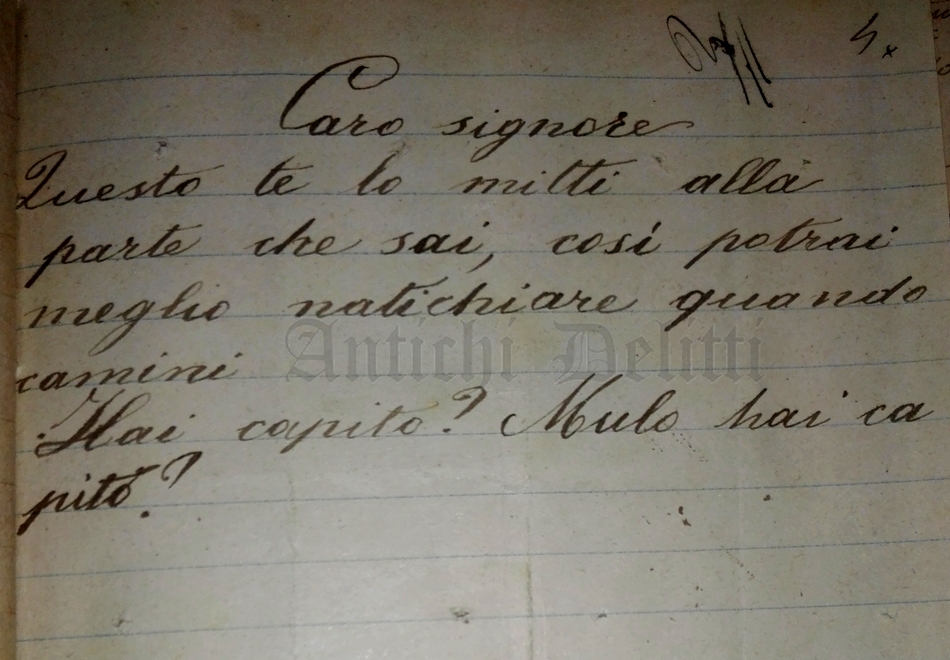 4
Caro signore
Questo te lo mitti alla
parte che sai, così potrai
meglio natichiare quando
camini
Antichi Delitti
Hai capito? Mulo hai ca
pito?